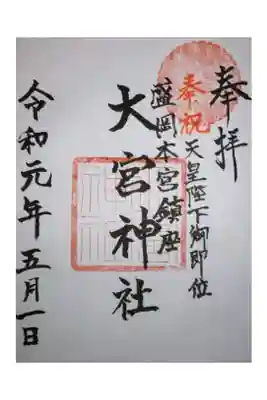 奉拝
奉祝
天皇陛下御即位
盛岡本宮鎮座
大宮神社
令和元年五月一日